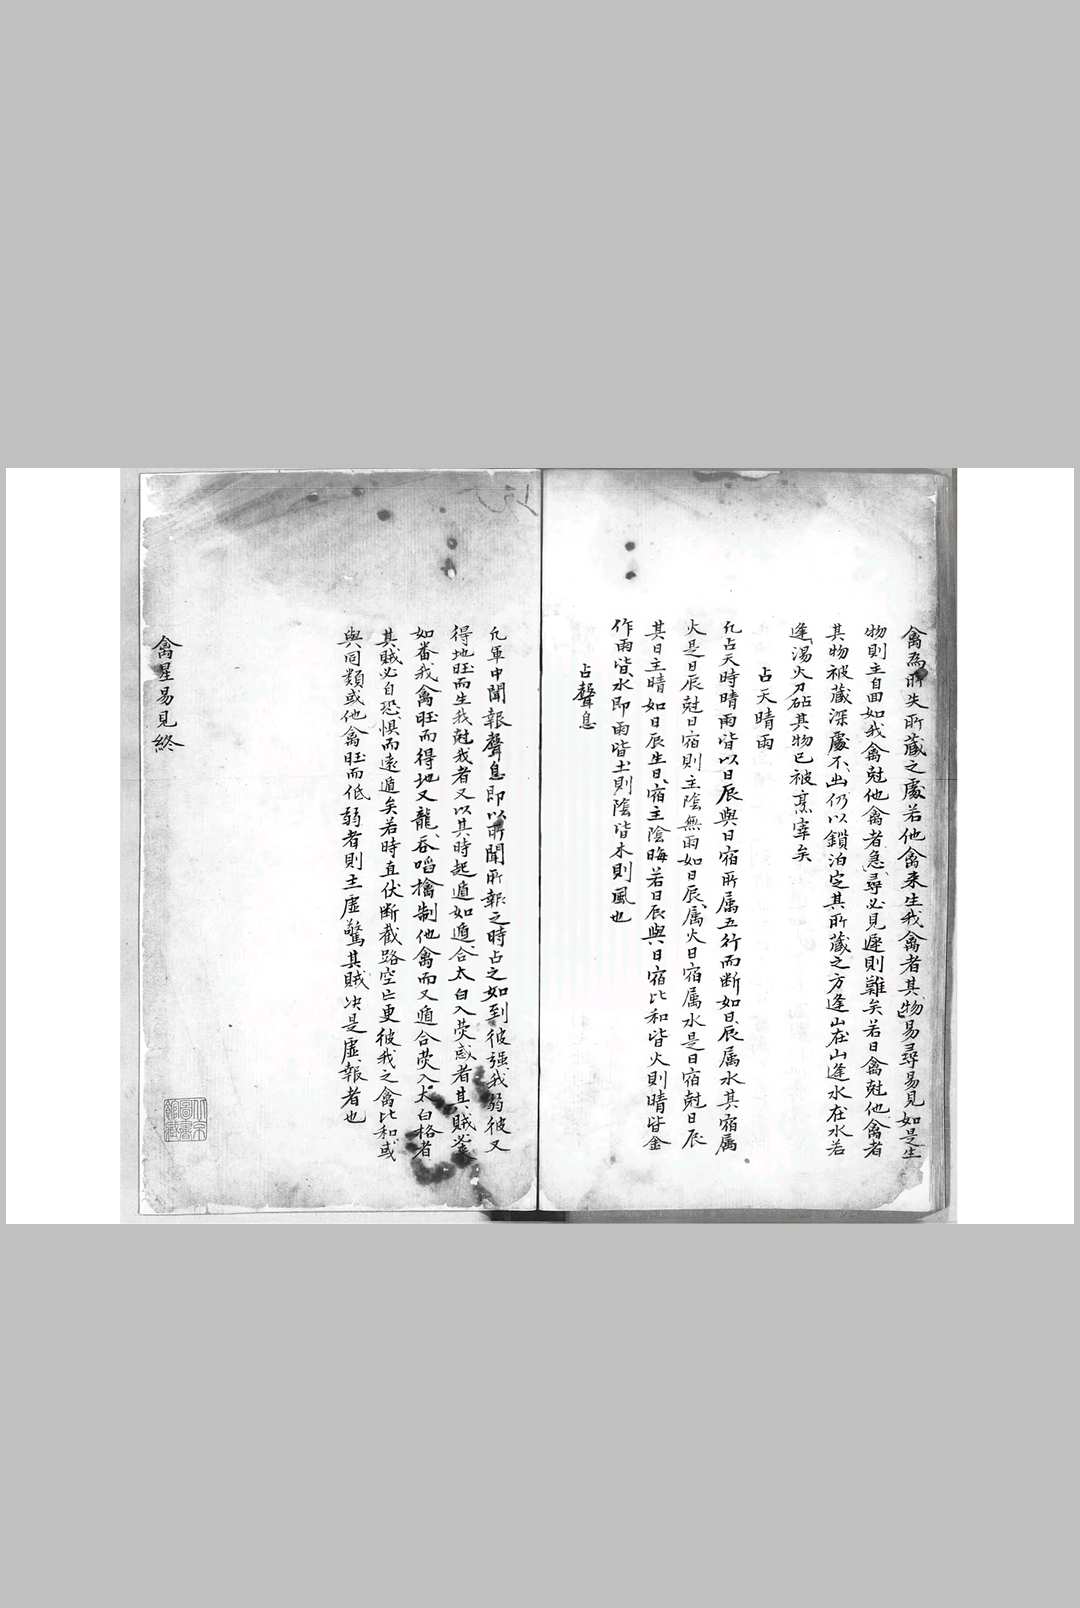 禽為所失所藏之處若他禽来生我禽者其物易尋易見如是生
物則主自回如我禽尅他禽者急尋必見遲則難矣若日禽尅他禽者
其物被藏深處不出仍以鎖泊定其所藏之方逢山在山逢水在水若
逢湯火刀砧其物已被烹宰矣
占天晴雨
凡占天時晴雨皆以日辰與日宿所属五行而断如日辰属水其宿属
火是日辰尅日宿則主陰無雨如日辰属火日宿属水是日宿尅日辰
其日主晴如日辰生日宿主陰晦若日辰與日宿比和皆火則晴皆金
作雨皆水即雨皆土則陰皆木則風也
占聲息
凡軍中聞報聲息即以所聞所報之時占之如到彼强我弱彼又
得地旺而生我尅我者又以其時起遁如遁合太白入熒惑者其賊必
如畨我禽旺而得地又龍吞啗擒制他禽而又遁合熒入太白格者
其賊必自恐惧而遠遁矣若時直伏断截路空亡更彼我之禽比和或
與同類或他禽旺而低弱者則主虚驚其賊决是虚報者也
禽星易見終